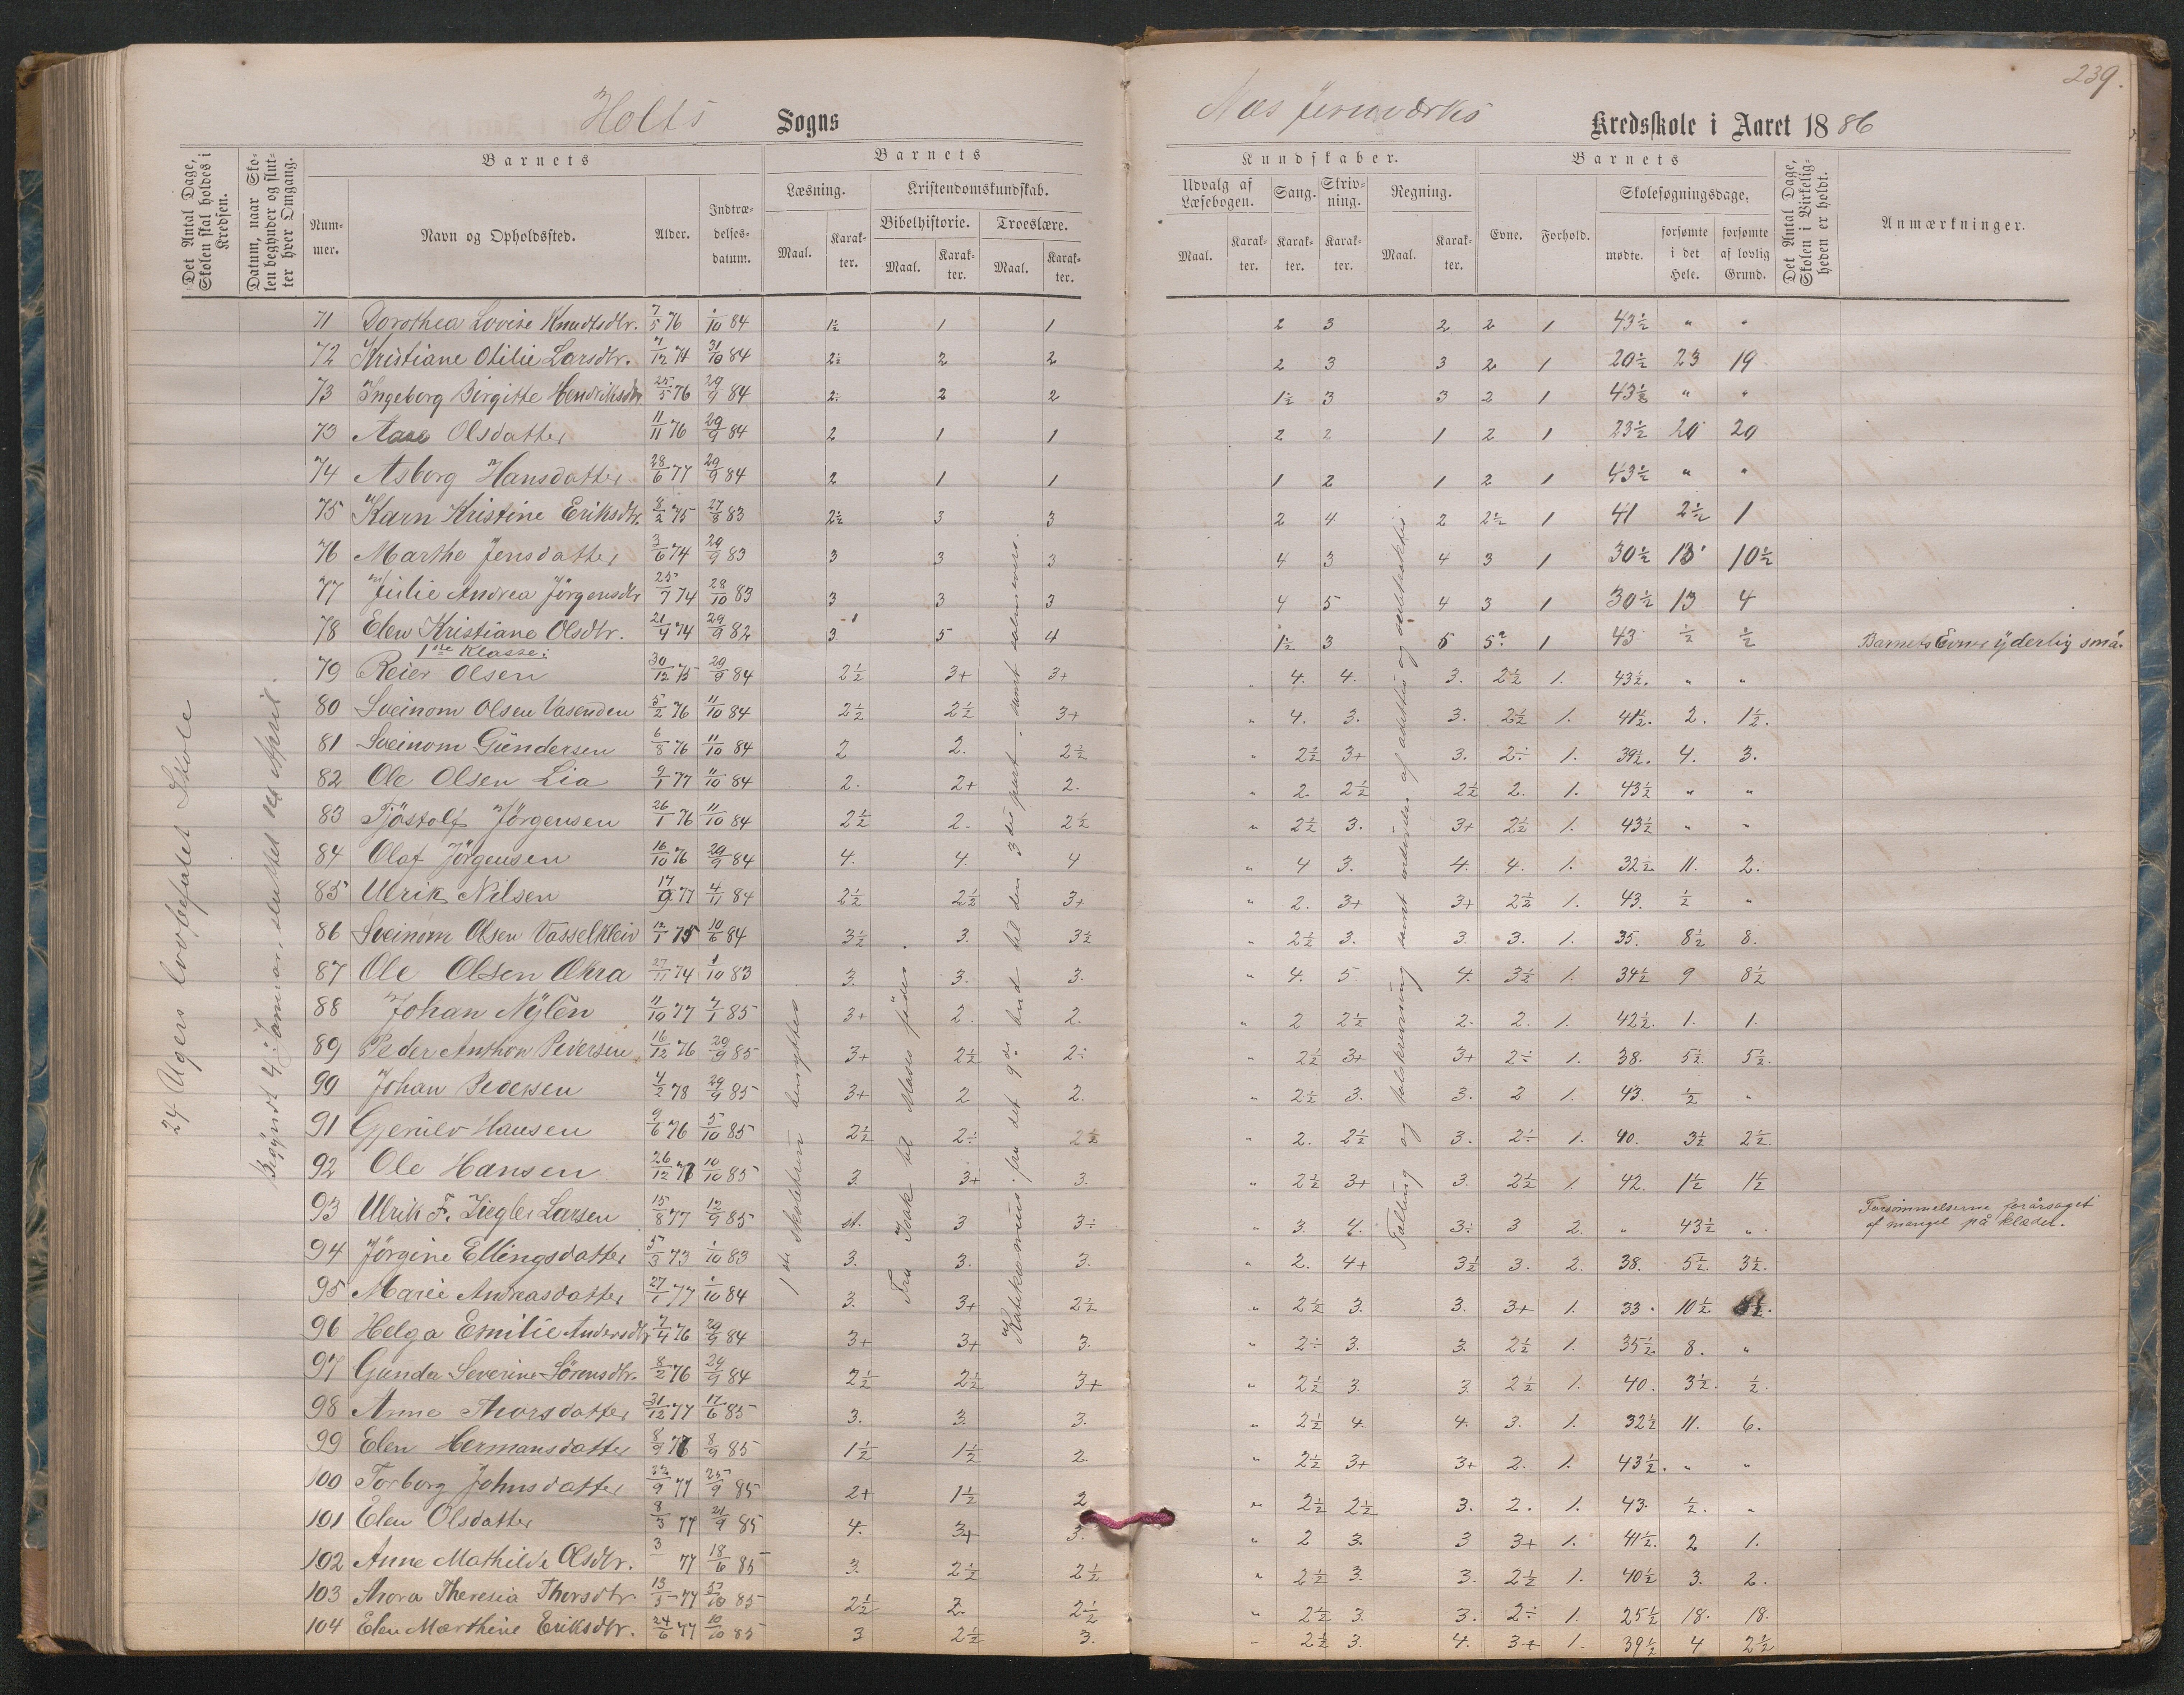 239.
Holts Sogns
Næs Jernværks Kredsskole i Aaret 1886
Det Antal Dage, Skolen skal holdes i Kredsen.
Datum, naar Skolen begynder og slutter hver Omgang.
Barnets
Barnets
Kundskaber.
Barnets
Det Antal Dage, Skolen i Virkeligheden er holdt.
Anmærkninger.
Nummer.
Navn og Opholdssted.
Alder.
Indtrædelsesdatum.
Læsning.
Kristendomskundskab.
Bibelhistorie.
Troeslære.
Maal. Karakter. Maal. Karakter. Maal. Karakter.
Udvalg af Læsebogen.
Sang.
Skrivning.
Regning.
Maal. Karakter. Karakter. Karakter. Maal. Karakter.
Evne.
Forhold.
Skolesøgningsdage.
mødte.
forsømte i det Hele.
forsømte af lovlig Grund.
24 Ugers lovbefalet Skole
71 Dorothea Lovise Knudtsdtr. 7/5 76 1/10 84 1½ 1 1 2 3 2 2 1 43½ " "
72 Kristiane Otilie Larsdtr. 7/12 74 31/10 84 2½ 2 2 2 3 3 2 1 20½ 23 19
73 Ingeborg Birgitte Hendriksdtr 25/5 76 29/9 84 2÷ 2 2 1½ 3 3 2 1 43½ " "
73 Aase Olsdatter 11/11 76 29/9 84 2 1 1 2 2 1 2 1 23½ 20 20
74 Asborg Hansdatter 28/6 77 29/9 84 2 1 1 1 2 1 2 1 43½ " "
75 Karn Kristine Eriksdtr. 8/2 75 27/8 83 2½ 3 3 2 4 2 2½ 1 41 2½ 1
76 Marthe Jensdatter 3/6 74 29/9 83 3 3 3 4 3 4 3 1 30½ 13 10½
77 Julie Andrea Jörgensdtr 25/7 74 28/10 83 3 3 3 4 5 4 3 1 30½ 13 4
78 Elen Kristiane Olsdtr. 21/4 74 29/9 82 3 5 4 1½ 3 5 5? 1 43 ½ ½ Barnets Evner yderlig små.
1ste Klasse:
79 Reier Olsen 30/12 75 29/9 84 2½ 3+ 3+ " 4. 4. 3. 2½ 1. 43½. " "
80 Sveinom Olsen Vasenden 5/2 76 11/10 84 2½ 2½ 3+ " 4. 3. 3. 2½ 1. 41½. 2. 1½.
81 Sveinom Gundersen 6/8 76 11/10 84 2 2. 2½ " 2½ 3+ 3. 2÷ 1. 39½. 4. 3.
82 Ole Olsen Lia 9/1 77 11/10 84 2. 2+ 2. " 2. 2½ 2½ 2. 1. 43½ " "
83 Tjöstolf Jörgensen 26/1 76 11/10 84 2½ 2. 2½ " 2½ 3. 3+ 2½ 1. 43½ " "
84 Olaf Jörgensen 16/10 76 29/9 84 4. 4. 4 " 4 3. 4. 4. 1. 32½ 11. 2.
85 Ulrik Nilsen 17/9 77 4/11 84 2½ 2½ 3+ " 2. 3+ 3+ 2½ 1. 43. ½ "
86 Sveinom Olsen Vasselkleiv 12/1 75 10/6 84 3½ 3. 3½ " 2½ 3. 3. 3. 1. 35. 8½ 8.
87 Ole Olsen 27/11 74 1/10 83 3. 3. 3. " 4. 5 4. 3½ 1. 34½ 9 8½
88 Johan Nylén 11/10 77 7/1 85 3+ 2. 2. " 2 2½ 2. 2. 1. 42½. 1. 1.
89 Peder Anthon Pedersen 16/12 76 29/9 85 3+ 2½ 2÷ " 2½ 3+ 3+ 2÷ 1. 38. 5½. 5½.
90 Johan Pedersen 4/2 78 29/9 85 3+ 2 2. " 2½ 3. 3. 2 1. 43. ½ "
91 Gjerulv Hansen 9/6 76 5/10 85 2½ 2÷ 2½ " 2. 2½ 3. 2÷ 1. 40. 3½ 2½.
92 Ole Hansen 26/12 10/10 85 3. 3+ 3. " 2½ 3+ 3. 2½ 1. 42. 1½ 1½
93 Ulrik F. Ziegler Larsen 15/8 77 12/9 85 st. 3 3÷ " 3. 4. 3÷ 3 2. " 43½ " Forsömmelserne forårsaget af mangel på klæder.
94 Jörgine Ellingsdatter 5/3 73 1/10 83 3. 3. 3. " 2. 4+ 3½ 3. 2. 38. 5½. 3½.
95 Marie Andreasdatter 27/1 77 1/10 84 3. 3+ 2½ " 2½ 3. 3. 3+ 1. 33. 10½
96 Helga Emilie Andersdtr 7/4 76 29/9 84 3+ 3+ 3. " 2÷ 3. 3. 2½ 1. 35½ 8. "
97 Gunda Severine Sörensdtr. 8/2 76 29/9 84 2½ 2½ 3+ " 2½ 3. 3. 2½ 1. 40. 3½. ½.
98 Anne Thorsdatter 31/12 77 17/6 85 3. 3. 3. " 2½ 4. 4. 3. 1. 32½ 11. 6.
99 Elen Hermansdatter 8/9 76 8/9 85 1½ 1½ 2. " 2½ 3+ 3+ 2. 1. 43½. " "
100 Torborg Johnsdatter 22/9 77 25/9 85 2+ 1½ 2 " 2½ 2½ 3. 2. 1. 43. ½. "
101 Elen Olsdatter 8/3 77 21/9 85 4. 3+ 3. " 2 3. 3 3+ 1. 41½. 2 1.
102 Anne Mathilde Olsdtr. 3/ 77 18/6 85 3. 2½ 2½ " 2½ 3. 3. 2½ 1. 40½ 3. 2.
103 Thora Theresia Thorsdtr 13/5 77 85 2½ 2. 2½ " 2½ 3. 3. 2÷ 1. 25½ 18. 18.
104 Elen Marthine Eriksdtr. 24/6 77 10/10 85 3 2½ 3. " 2½ 3. 4. 3+ 1. 39½ 4 2½
Begyndt 4. Januar, sluttet April.
1ste skoletrin benyttes.
Fra Isak til Mose föder.
Katekismus. fra det 9de bud til den 3die part - samt salmevers.
Talling og talskrivning samt